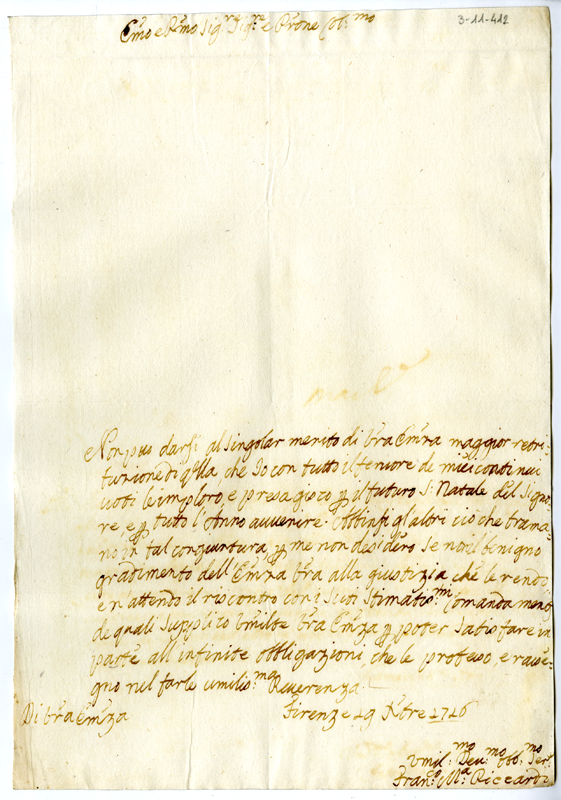 3-11-412
Emo e Rmo Sigre Sigre e Prone Obbmo
Non può darsi al singolar merito di Vra Emza maggior retri-
tuzione di qlla, che Io con tutto il fervore de miei continui
voti le imploro, e presagisco p il futuro S. Natale del Signo-
re, e p tutto l'Anno avvenire. gl'altri ciò che brama-
no in tal congiuntura, p me non desidero se non il benigno
gradimento dell'Emza Vra alla giustizia che le rendo,
e n'attendo il riscontro con i Suoi Stimatismi Comandamenti
de quali Supplico Umilte Vra Emza p poter Satisfare in
parte all'infinite obbligazioni, che le professo e rasse-
gno nel farle umilisma Reverenza.
Di Vra Emza
Firenze 29 Nbre 1716
Umilmo Devmo Obbmo Serre
Frano Ma Riccardi